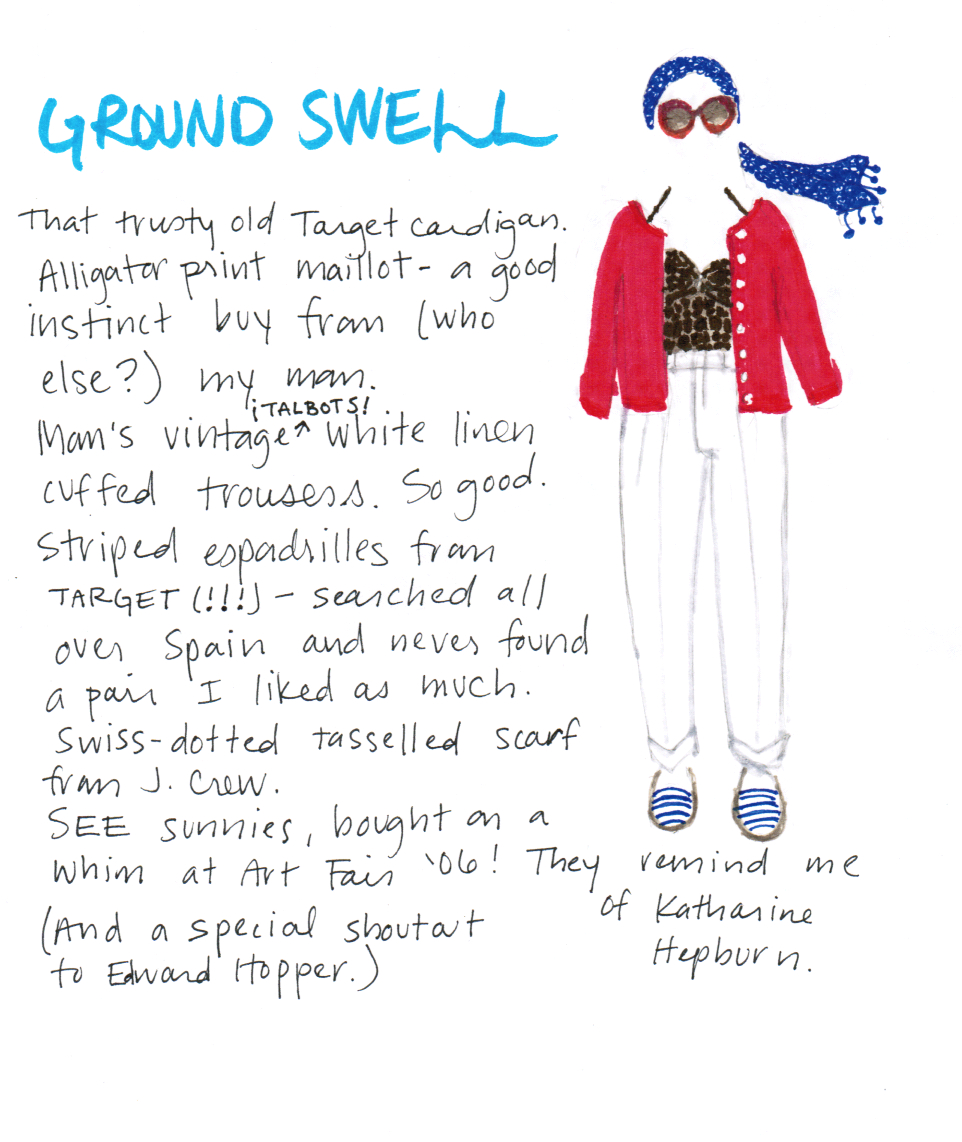 GROUND SWELL
That trusty old Target cardigan.
Alligator print maillot - a good
instinct buy from (who
else?) my mom.
¡TALBOTS!
Mom's vintage^ white linen
cuffed trousers. So good.
Striped espadrilles from
TARGET (!!!) - searched all
over Spain and never found
a pair I liked as much.
Swiss-dotted tasselled scarf
from J. Crew.
SEE sunnies, bought on a
whim at Art Fair '06! They remind me
of Katharine
Hepburn.
(And a special shoutout
to Edward Hopper.)